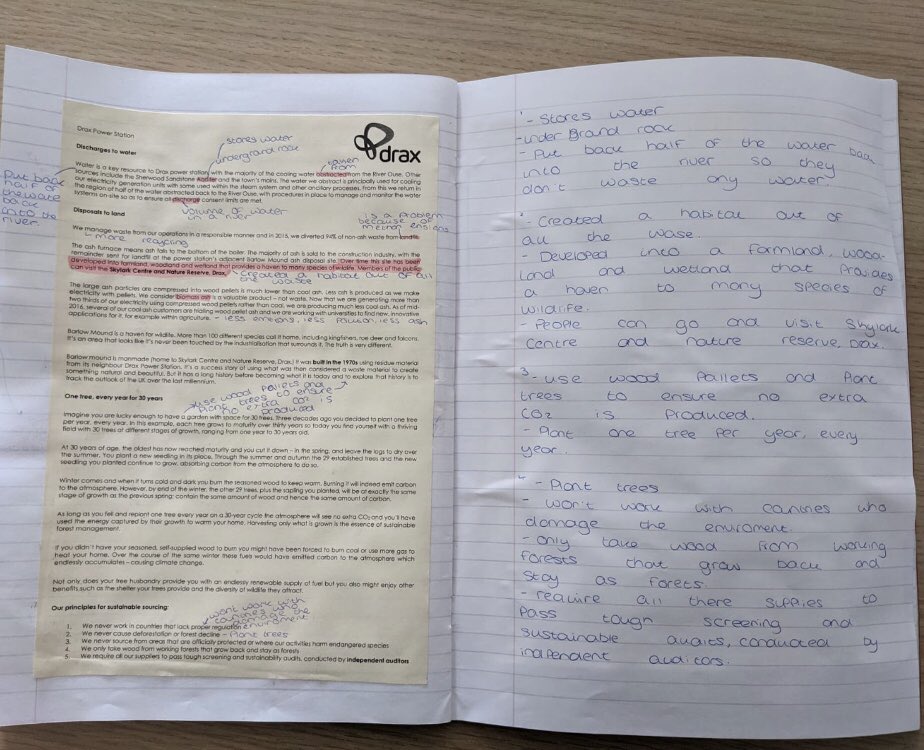 Drax Power Station
stores water
drax
Discharges to water
underground rock
taken from
Water is a key resource to Drax power station, with the majority of the cooling water abstracted from the River Ouse. Other
sources include the Sherwood Sandstone Aquifer and the town's mains. The water we abstract is principally used for cooling
our electricity generation units with some used within the steam system and other ancillary processes. From this we return in
the region of half of the water abstracted back to the River Ouse, with procedures in place to manage and monitor the water
systems on-site so as to ensure all discharge consent limits are met.
Put back
half of
the water
back
into the
river.
volume of water
in a river
is a problem
because of
Disposals to land
We manage waste from our operations in a responsible manner and in 2015, we diverted 94% of non-ash waste from landfill.
more recycling
The ash furnace means ash falls to the bottom of the boiler. The majority of ash is sold to the construction industry, with the
remainder sent for landfill at the power station's adjacent Barlow Mound ash disposal site. Over time this site has been
developed into farmland, woodland and wetland that provides a haven to many species of wildlife. Members of the public
can visit the Skylark Centre and Nature Reserve, Drax.
created a habitat out of all
the waste
The large ash particles are compressed into wood pellets is much lower than coal ash. Less ash is produced as we make
electricity with pellets. We consider biomass ash is a valuable product – not waste. Now that we are generating more than
two thirds of our electricity using compressed wood pellets rather than coal, we are producing much less coal ash. As of mid-
2016, several of our coal ash customers are trialing wood pellet ash and we are working with universities to find new, innovative
applications for it, for example within agriculture.
- less emetions, less pollution, less ash
Barlow Mound is a haven for wildlife. More than 100 different species call it home, including kingfishers, roe deer and falcons.
It's an area that looks like it's never been touched by the industrialisation that surrounds it. The truth is very different.
Barlow mound is manmade (home to Skylark Centre and Nature Reserve, Drax.) It was built in the 1970s using residue material
from its neighbour Drax Power Station. It's a success story of using what was then considered a waste material to create
something natural and beautiful. But it has a long history before becoming what it is today and to explore that history is to
track the outlook of the UK over the last millennium.
use wood pallets and
plant trees to ensure
no extra CO2 is
produced
One tree, every year for 30 years
Imagine you are lucky enough to have a garden with space for 30 trees. Three decades ago you decided to plant one tree
per year, every year. In this example, each tree grows to maturity over thirty years so today you find yourself with a thriving
field with 30 trees at different stages of growth, ranging from one year to 30 years old.
At 30 years of age, the oldest has now reached maturity and you cut it down – in the spring, and leave the logs to dry over
the summer. You plant a new seedling in its place. Through the summer and autumn the 29 established trees and the new
seedling you planted continue to grow, absorbing carbon from the atmosphere to do so.
Winter comes and when it turns cold and dark you burn the seasoned wood to keep warm. Burning it will indeed emit carbon
to the atmosphere. However, by end of the winter, the other 29 trees, plus the sapling you planted, will be at exactly the same
stage of growth as the previous spring; contain the same amount of wood and hence the same amount of carbon.
As long as you fell and replant one tree every year on a 30-year cycle the atmosphere will see no extra CO2 and you'll have
used the energy captured by their growth to warm your home. Harvesting only what is grown is the essence of sustainable
forest management.
If you didn't have your seasoned, self-supplied wood to burn you might have been forced to burn coal or use more gas to
heat your home. Over the course of the same winter these fuels would have emitted carbon to the atmosphere which
endlessly accumulates – causing climate change.
Not only does your tree husbandry provide you with an endlessly renewable supply of fuel but you also might enjoy other
benefits such as the shelter your trees provide and the diversity of wildlife they attract.
Our principles for sustainable sourcing:
wont work with
countries who
damage the
enviroment
1. We never work in countries that lack proper regulation
2. We never cause deforestation or forest decline
- Plant trees
3. We never source from areas that are officially protected or where our activities harm endangered species
4. We only take wood from working forests that grow back and stay as forests
5. We require all our suppliers to pass tough screening and sustainability audits, conducted by independent auditors
1 - Stores water
- under Grand rock
- Put back half of the water back
into the river so they
don't waste any water.
2 - Created a habitat out of
all the wase.
- Developed into a farmland, wood-
land and wetland that Provides
a haven to many species of
wildlife.
- People can go and visit Skylark
Centre and nature reserve, Drax.
3 - use wood Pallets and Plant
trees to ensure no extra
CO2 is Produced.
- Plant one tree per year, every
year..
4 - Plant trees
- won't work with cantries who
damage the enviroment.
- only take wood from working
forests that grow back and
stay as forets.
- require all there supplies to
Pass tough screening and
sustainable audits, conducted by
independent auditors.